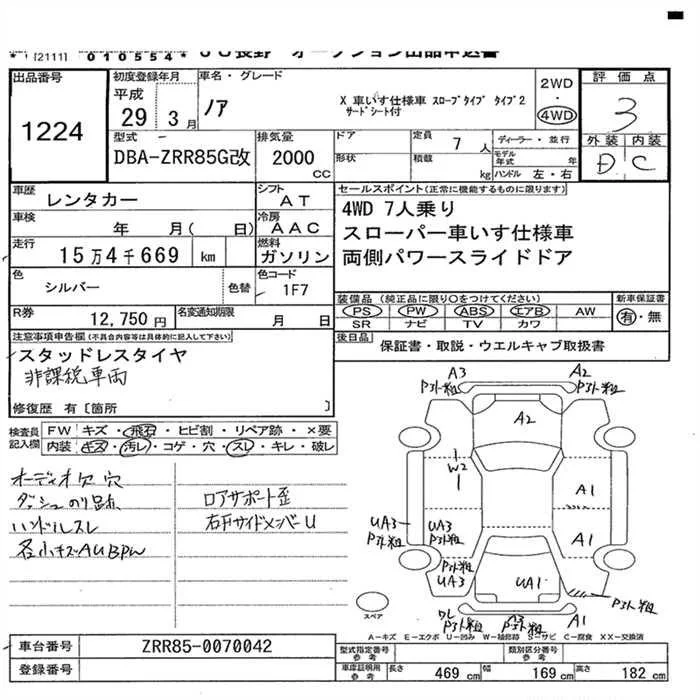 * 1 [2111] 010554* JU長野 オークション出品申込書
出品番号
1224
初度登録年月
平成
29 3 月
車名・グレード
ノア
X 車いす仕様車 スロープタイプ タイプ2
サードシート付
2WD
・
4WD
評価点
3
外装 内装
D C
型式
DBA-ZRR85G改
排気量
2000
cc
ドア
形状
定員
7 人
積載
kg
ディーラー・並行
モデル年式 年
ハンドル 左・右
車歴
レンタカー
シフト
AT
車検
年 月( 日)
冷房
AAC
走行
15万4千669 km
燃料
ガソリン
色
シルバー
色替
色コード
1F7
R券
12,750 円
名変通知期限
月 日
セールスポイント(正常に機能するものに限ります)
4WD 7人乗り
スローパー車いす仕様車
両側パワースライドドア
装備品 (純正品に限り○をつけてください)
PS PW ABS エアB AW
SR ナビ TV カワ
新車保証書
有・無
後日品
保証書・取説・ウエルキャブ取扱書
注意事項申告欄(不具合内容等は具体的に記入して下さい)
スタッドレスタイヤ
非課税車両
修復歴 有〔箇所 〕
検査員記入欄
FW キズ・飛石・ヒビ割・リペア跡・×要
内装 キズ・汚レ・コゲ・穴・スレ・キレ・破レ
オーディオ欠 穴
ダッシュのり跡
ハンドルスレ
各小キズAUBPW
ロアサポート歪
右Fサイドメンバー U
A3
Pスト粗
A2
Pスト粗
A2
W2
A1
UA3
Pスト粗
UA3
Pスト粗
A1
Pスト粗
UA3
UA1
Pスト粗
ワレ
Pスト粗
A3
Pスト粗
A1
スペア
A−キズ E−エクボ U−凹み W−補修跡 S−サビ C−腐食 XX−交換済
車台番号
ZRR85-0070042
登録番号
型式指定番号
参考
類別区分番号
参考
車庫証明用
参考
長さ 469 cm 幅 169 cm 高さ 182 cm